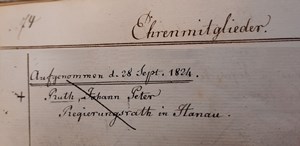 74
Ehrenmitglieder.
Aufgenommen d. 28 Sept. 1824.
+ Ruth, Johann Peter
Regierungsrath in Hanau.